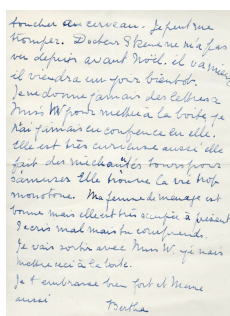 toucher au cerveau. Je peut me
tromper. Docteur Skene ne m'a pas
vu depuis avant Noël. il va mieux
il viendra un jour bientôt.
Je ne donne jamais des lettres a
Miss W pour mettre a la boite je
n'ai jamais eu confience en elle.
elle est très curieuse aussi elle
fait des méchantés tours pour
s'amuser Elle trouve la vie trop
monotone. Ma femme de menage est
bonne mais elle est très occupée à présent
J'ecris mal mais tu comprends.
Je vais sortir avec Miss W. et je vais
mettre ceci à la boite.
Je t'embrasse bien fort et Marie
aussi
Bertha